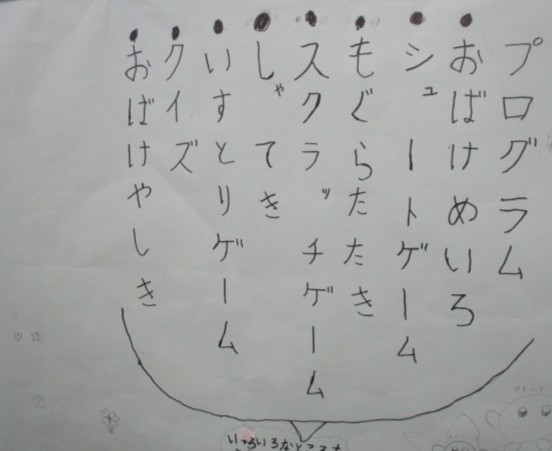 プログラム
おばけめいろ
シュートゲーム
もぐらたたき
スクラッチゲーム
しゃてき
いすとりゲーム
クイズ
おばけやしき